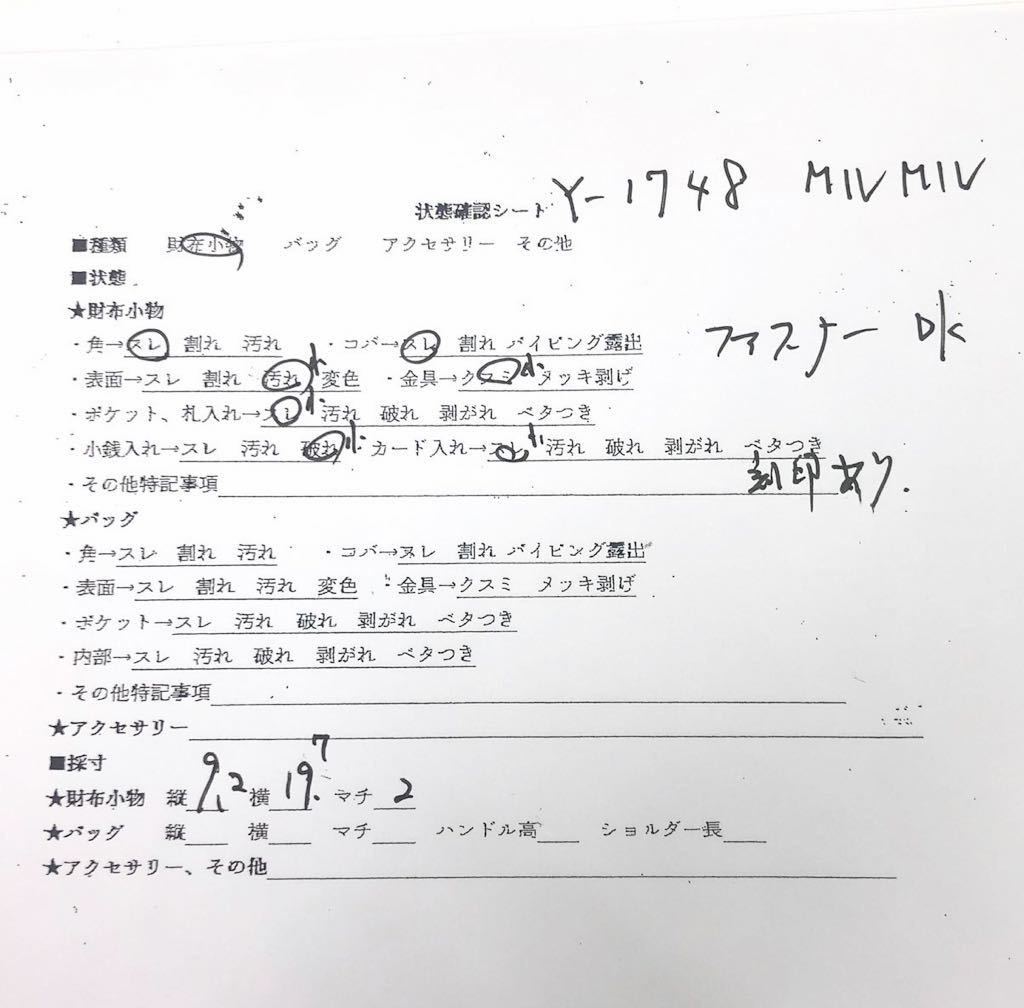 状態確認シート Y-1748 MIU MIU
■種類 財布小物 バッグ アクセサリー その他
■状態
★財布小物
・角→スレ 割れ 汚れ ・コバ→スレ 割れ パイピング露出
ファスナー OK
・表面→スレ 割れ 汚れ 小 変色 ・金具→クスミ 小 メッキ剥げ
・ポケット、札入れ→スレ 小 汚れ 破れ 剥がれ ベタつき
・小銭入れ→スレ 汚れ 破れ 小 ・カード入れ→スレ 小 汚れ 破れ 剥がれ ベタつき
・その他特記事項 刻印あり.
★バッグ
・角→スレ 割れ 汚れ ・コバ→スレ 割れ パイピング露出
・表面→スレ 割れ 汚れ 変色 ・金具→クスミ メッキ剥げ
・ポケット→スレ 汚れ 破れ 剥がれ ベタつき
・内部→スレ 汚れ 破れ 剥がれ ベタつき
・その他特記事項
★アクセサリー
■採寸
★財布小物 縦 9.2 横 19.7 マチ 2
★バッグ 縦 横 マチ ハンドル高 ショルダー長
★アクセサリー、その他